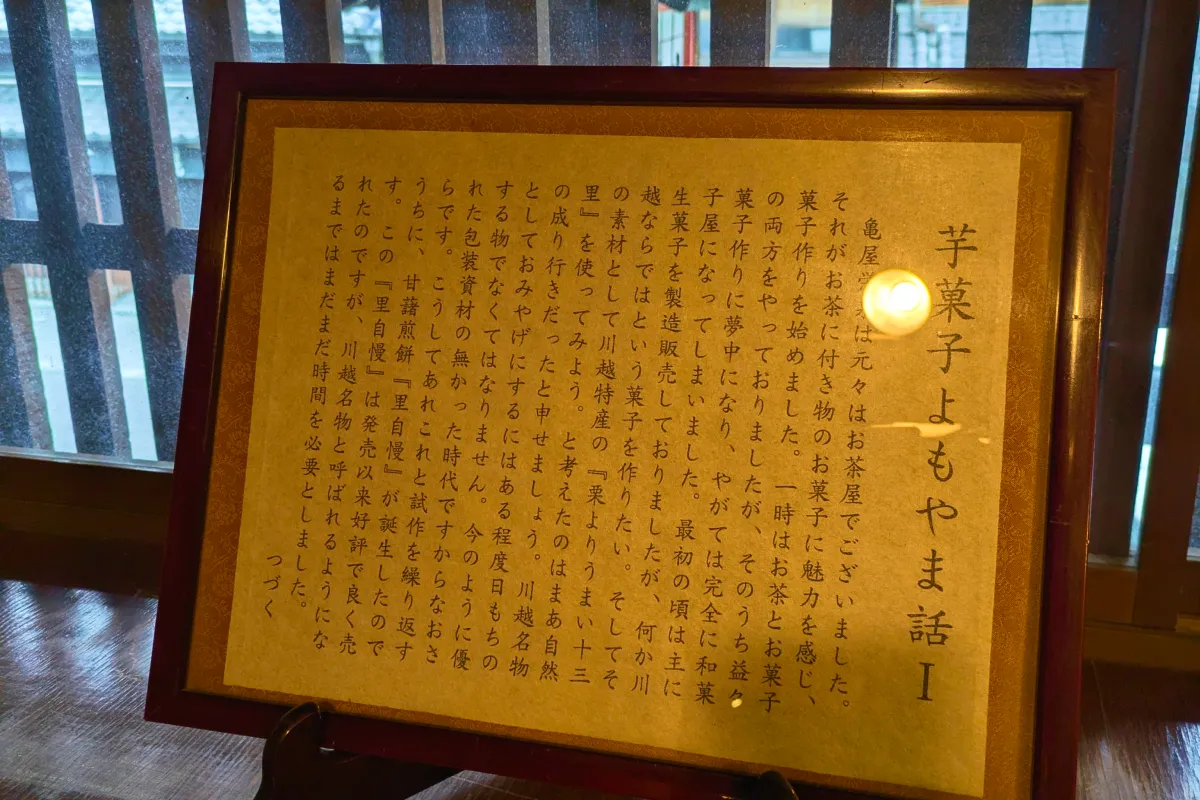 芋菓子よもやま話 I
亀屋は元々はお茶屋でございました。
それがお茶に付き物のお菓子に魅力を感じ、
菓子作りを始めました。一時はお茶とお菓子
の両方をやっておりましたが、そのうち益々
菓子作りに夢中になり、やがては完全に和菓
子屋になってしまいました。最初の頃は主に
生菓子を製造販売しておりましたが、何か川
越ならではという菓子を作りたい。そしてそ
の素材として川越特産の『栗よりうまい十三
里』を使ってみよう。と考えたのはまあ自然
の成り行きだったと申せましょう。川越名物
としておみやげにするにはある程度日もちの
する物でなくてはなりません。今のように優
れた包装資材の無かった時代ですからなおさ
らです。こうしてあれこれと試作を繰り返す
うちに、甘藷煎餅『里自慢』が誕生したので
す。この『里自慢』は発売以来好評で良く売
れたのですが、川越名物と呼ばれるようにな
るまではまだまだ時間を必要としました。
つづく